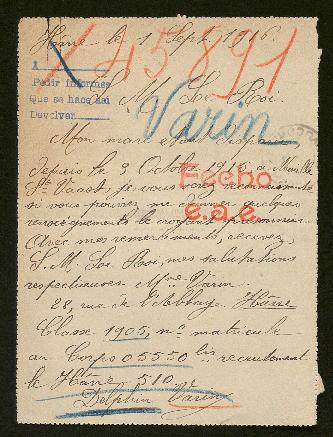 Havre le 1 Sept. 1916
145891
A
Pedir informes
Que se hace asi
Devolver
S. M. Le Roi
Varin
Mon mari étant disparu
depuis le 3 Octobre 1915 à Neuville
St Vaast, je vous
si vous pouviez me donner quelques
renseignements le croyant prisonnier.
Fecho
e.a.e.
Avec mes remerciements, recevez,
S. M. Le Roi, mes salutations
respectueuses. Mme Varin.
28, rue de l'Abbaye Hâvre
Classe 1905, no matricule
au Corps 05550 bis recrutement
le Hâvre 510.
Delphin Varin